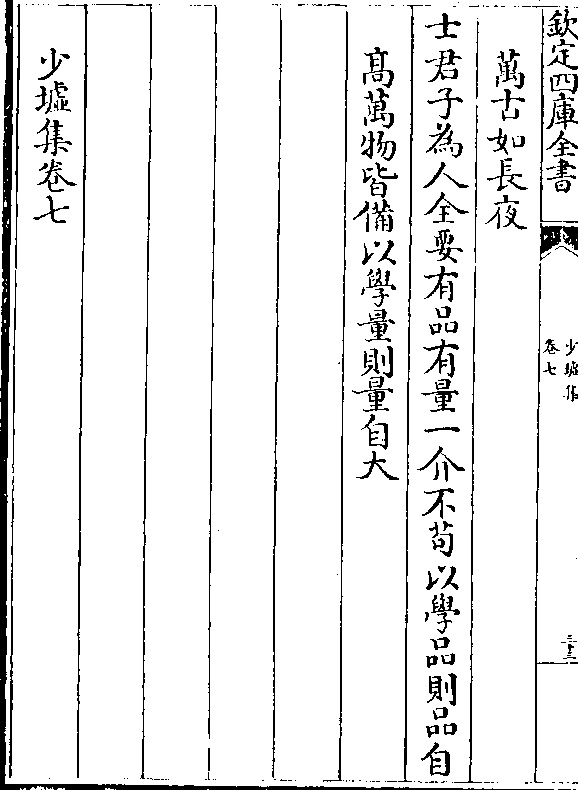 欽定四庫全書
少墟集
卷七
三十三
萬古如長夜
士君子為人全要有品有量一介不苟以學品則品自
髙萬物皆備以學量則量自大
少墟集卷七